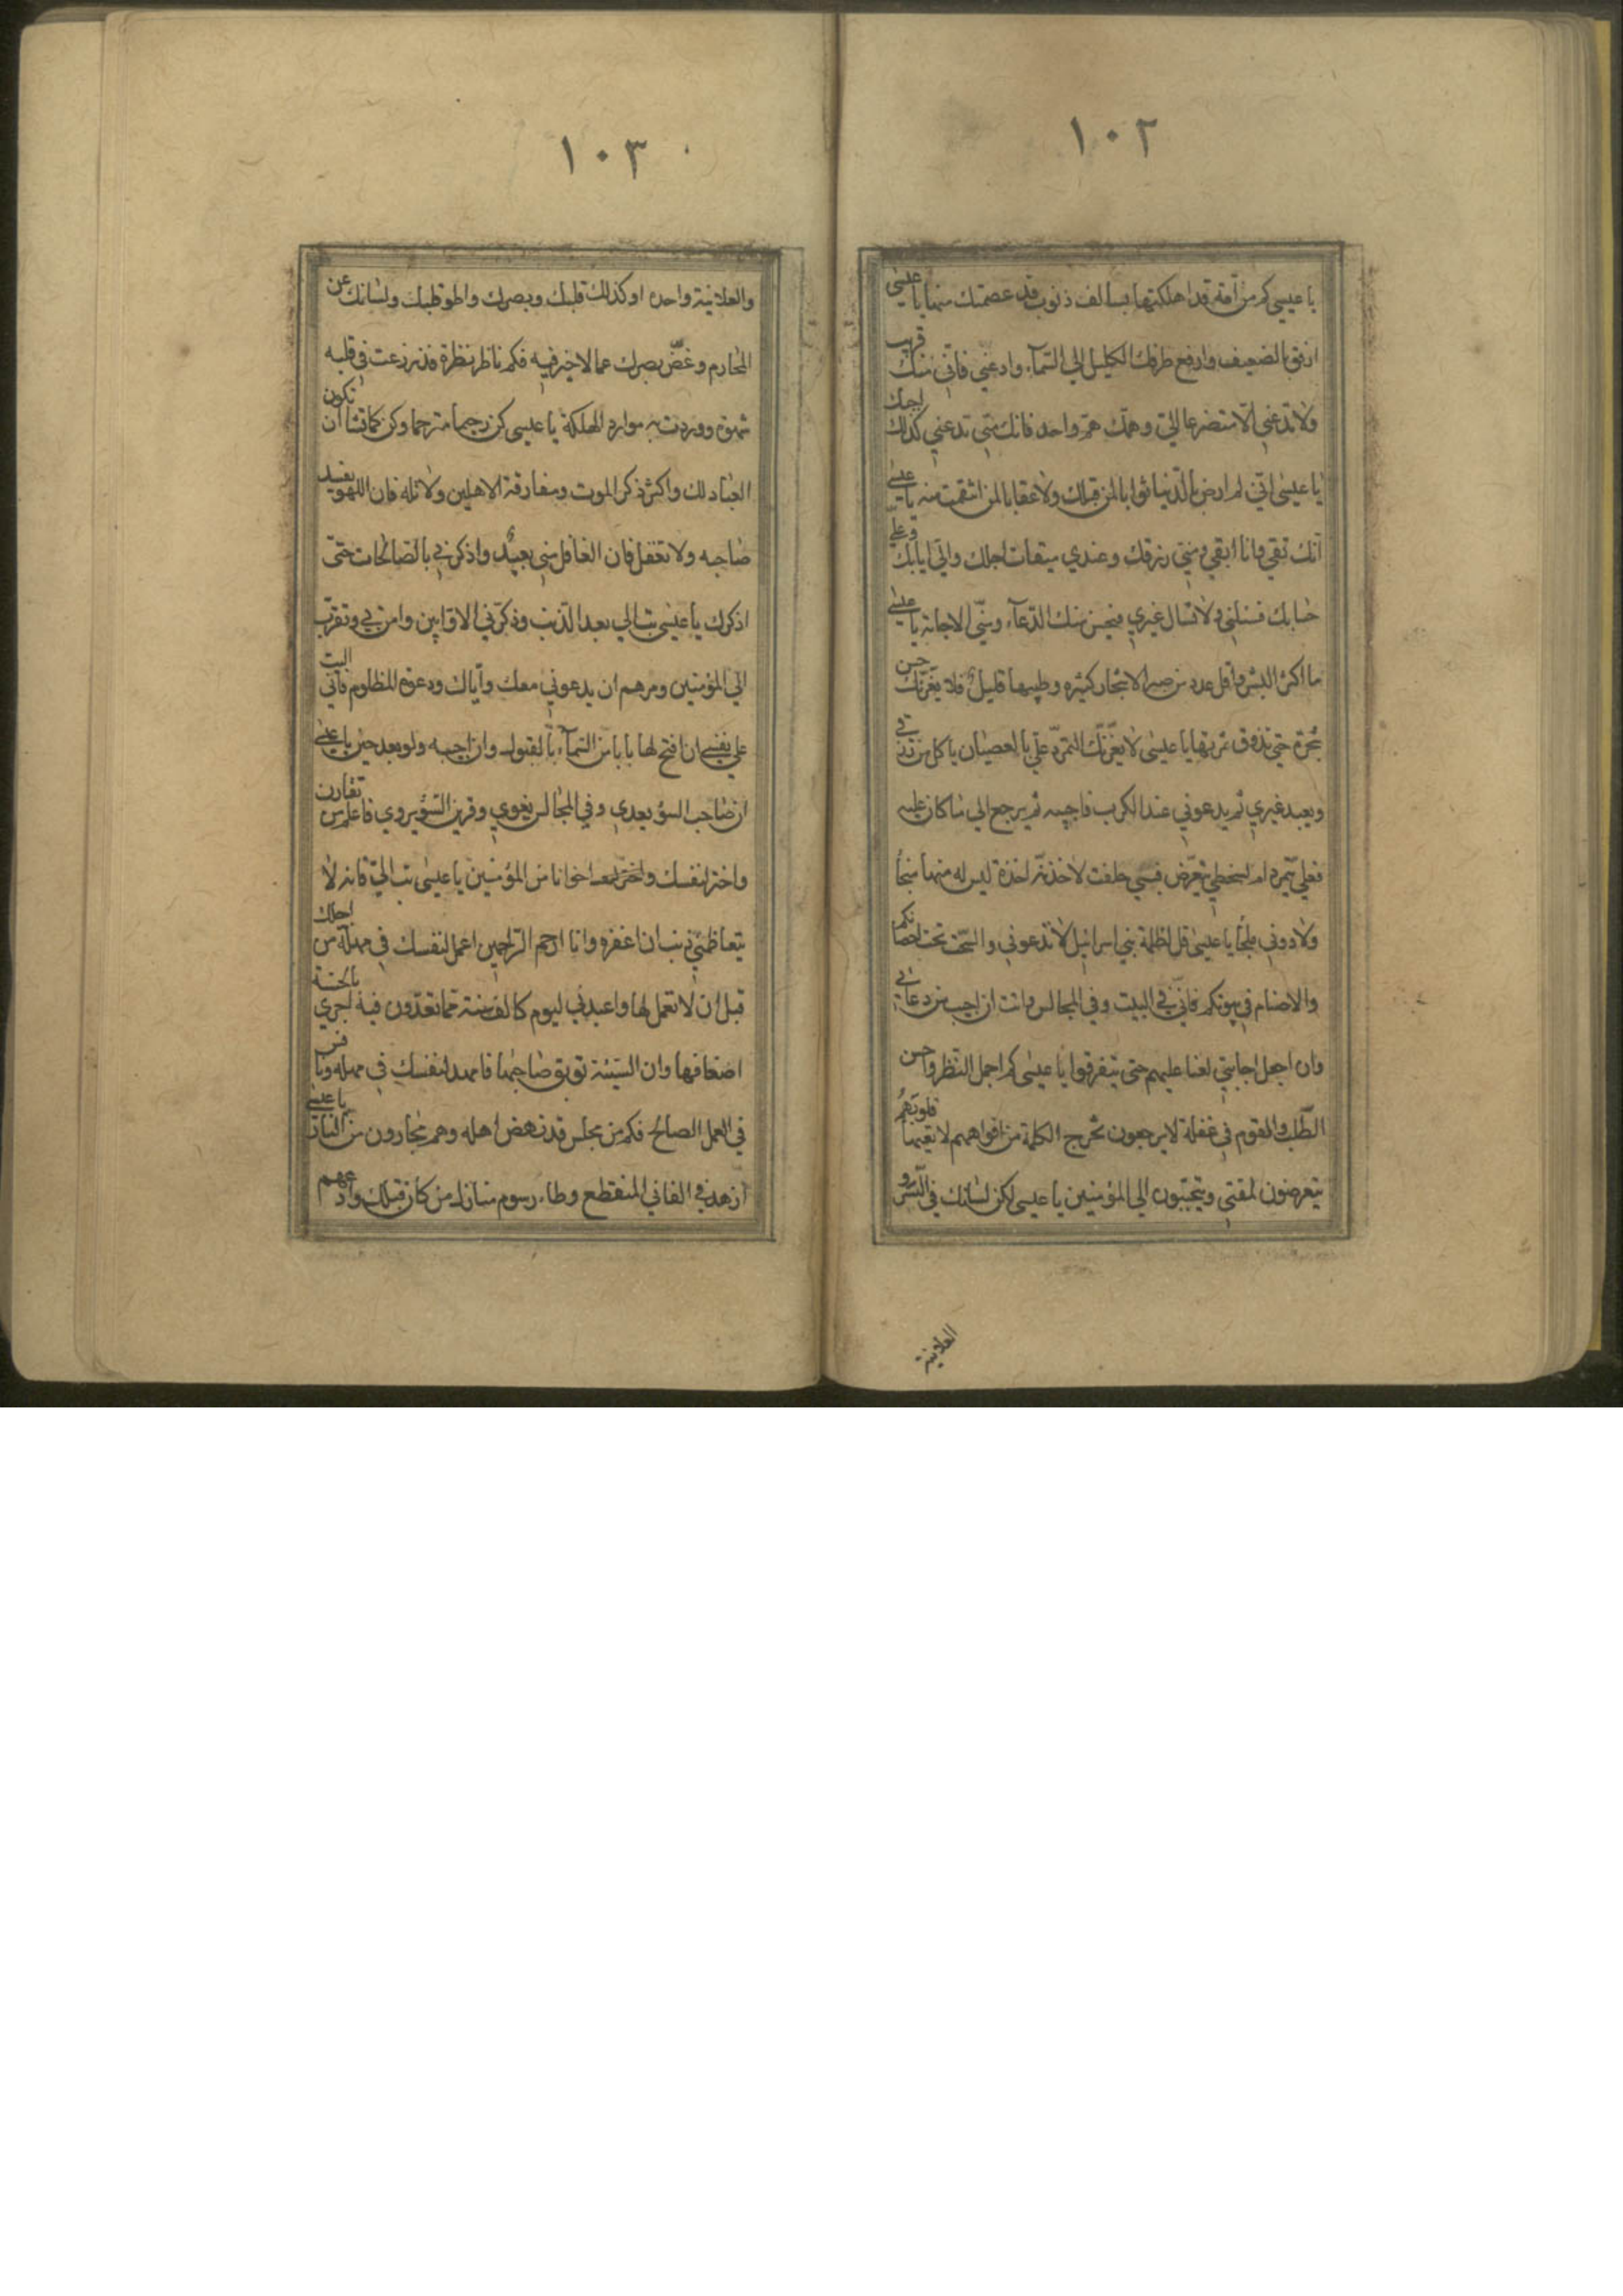 ١٠٢
يا عيسى كم من امة قد اهلكتها بسالف ذنوب قد عصمتك منها يا عيسى
ارفق بالضعيف وارفع طرفك الكليل الى السمآء وادعني فاني منك قريب
ولا تدعني الا متضرعا الي وهمك هم واحد فانك متى تدعني كذلك اجبك
يا عيسى اني لم ارض بالدنيا ثوابا لمن قبلك ولا عقابا لمن انتقمت منه يا عيسى
انك تفنى وانا ابقى ومني رزقك وعندي ميقات اجلك والي ايابك وعلي
حسابك فسئلني ولا تسال غيري فيحسن منك الدعآء ومني الاجابة يا عيسى
ما اكثر البشر واقل عدد من صبر الاشجار كثيره وطيبها قليل فلا يغرنك حسن
شجرة حتى تذوق ثمرتها يا عيسى لا يغرنك المتمرد علي بالعصيان ياكل من رزقي
ويعبد غيري ثم يدعوني عند الكرب فاجيبه ثم يرجع الى ما كان عليه
فعلي يتمرد ام لسخطي يتعرض فبي حلفت لاخذنه اخذة ليس له منها منجا
ولا دوني ملجأ يا عيسى قل لظلمة بني اسرائيل لا تدعوني والسحت تحت احضانكم
والاصنام في بيوتكم فاني في البيت وفي المجالس وانت ان اجيب من دعاني
وان اجعل اجابتي لعنا عليهم حتى يتفرقوا يا عيسى كم اجمل النظر واحسن
الطلب والقوم في غفلة لا يرجعون تخرج الكلمة من افواههم لا تعيها قلوبهم
يتعرضون لمقتي ويتحببون الى المؤمنين يا عيسى لكن لسانك في السر و
العلانية
١٠٣
والعلانية واحدا وكذلك قلبك وبصرك واطو قلبك ولسانك عن
المحارم وغض بصرك عما لا خير فيه فكم ناظر نظرة قد زرعت في قلبه
شهوة ووردت به موارد الهلكة يا عيسى كن رحيما مترحما وكن كما تشا ان تكون
العباد لك واكثر ذكر الموت ومفارقة الاهلين ولا تله فان اللهو يفسد
صاحبه ولا تغفل فان الغافل مني بعيد واذكرني بالصالحات حتى
اذكرك يا عيسى تب الي بعد الذنب وذكرني الاوابين وامن بي وتقرب
الى المؤمنين ومرهم ان يدعوني معك واياك ودعوة المظلوم فاني اليت
على نفسي ان افتح لها بابا من السمآء بالقبول وان اجيبه ولو بعد حين يا عيسى
ان صاحب السوء يعدي وفي المجالس يغوي وقرين السوء يردي فاعلم من تقارن
واختر لنفسك واختر لها اخوانا من المؤمنين يا عيسى تب الي فانه لا
يتعاظمني ذنب ان اغفره وانا ارحم الراحمين اعمل لنفسك في مهلة من اجلك
قبل ان لا تعمل لها واعبدني ليوم كالف سنة مما تعدون فيه اجزي بالحسنة
اضعافها وان السيئة توبق صاحبها فامهد لنفسك في مهلة ونافس
في العمل الصالح فكم من مجلس قد نهض اهله وهم مجارون من النار يا عيسى
ازهد في الفاني المنقطع وطاء رسوم منازل من كان قبلك وادعهم